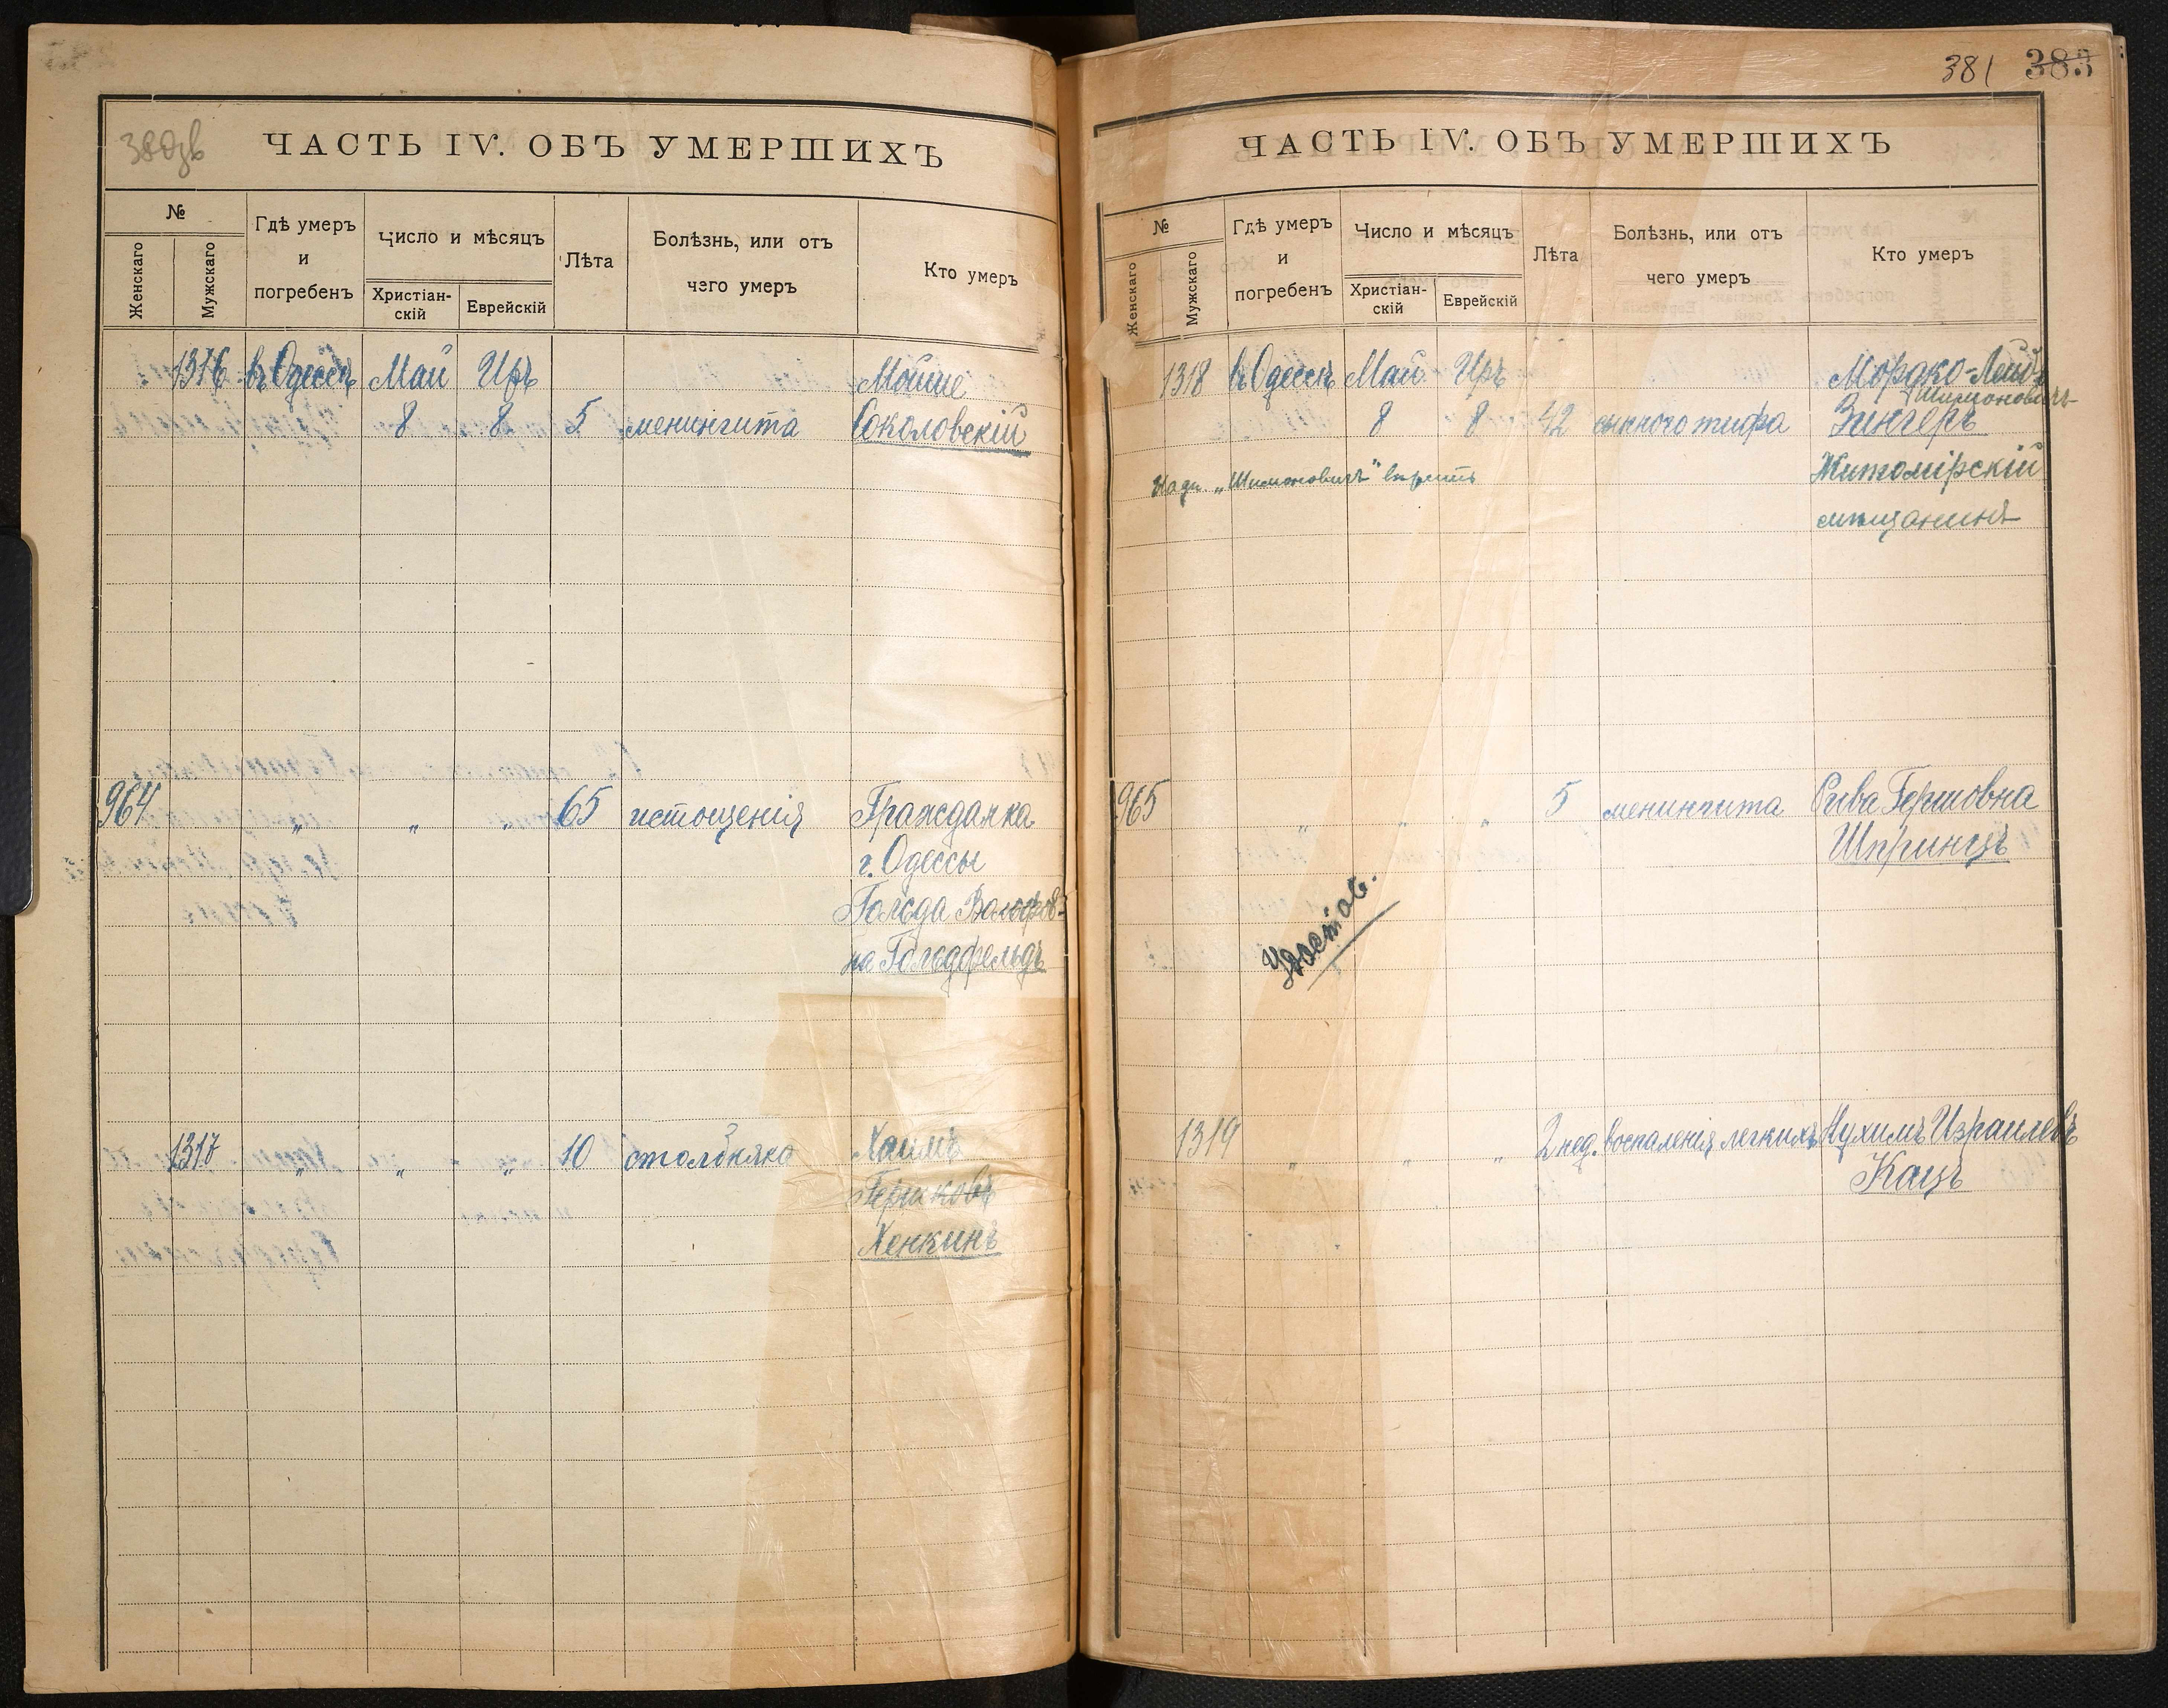 380зв
ЧАСТЬ IV. ОБЪ УМЕРШИХЪ
№
Женскаго
Мужскаго
Гдѣ умеръ
и
погребенъ
Число и мѣсяцъ
Христіан-
скій
Еврейскій
Лѣта
Болѣзнь, или отъ
чего умеръ
Кто умеръ
1316 въ Одессѣ Май Иръ Мойше
8 8 5 менингита Соколовскій
964 " " " 65 истощенія Гражданка
г. Одессы
Гольда Вольфов-
на Гольдфельдъ
1317 " " " 10 столбняка Хаимъ
Гершковъ
Хенкинъ
381 383
ЧАСТЬ IV. ОБЪ УМЕРШИХЪ
№
Женскаго
Мужскаго
Гдѣ умеръ
и
погребенъ
Число и мѣсяцъ
Христіан-
скій
Еврейскій
Лѣта
Болѣзнь, или отъ
чего умеръ
Кто умеръ
1318 въ Одессѣ Май Иръ Мордко-Лейбъ
Шимоновичъ
8 8 42 сыпного тифа Зингеръ
Надп. „Шимоновичъ" вѣрить
Житомірскій
мѣщанинъ
965 " " " 5 менингита Рива Гершовна
Шпринцъ
Удостов.
1319 " " " 2 нед. воспаленія легкихъ Нухимъ Израилевъ
Кацъ